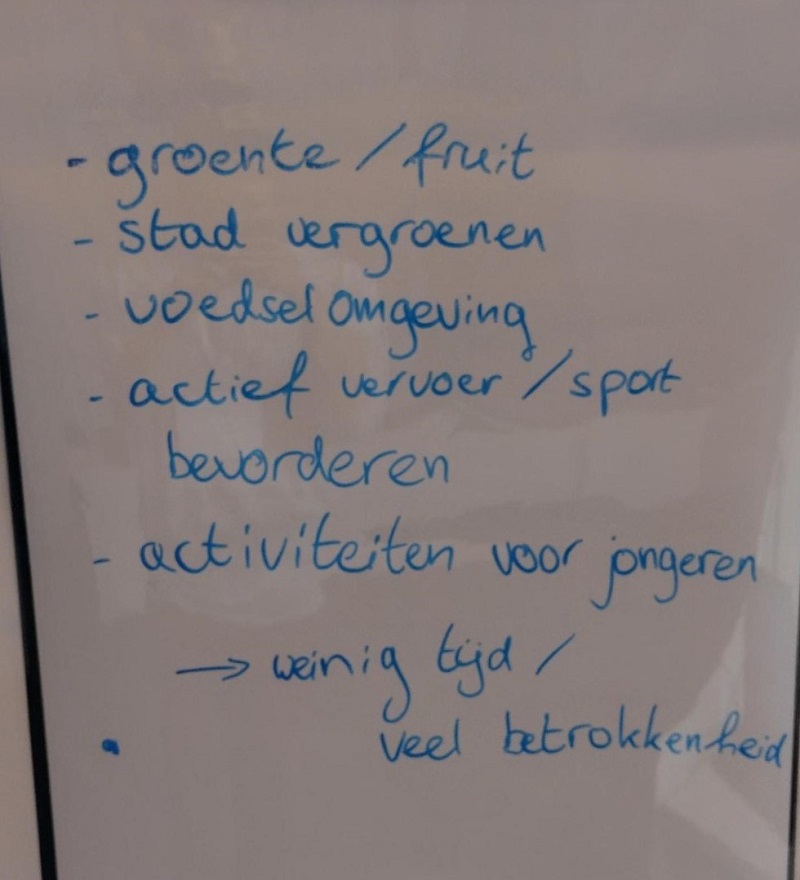 - groente / fruit
- stad vergroenen
- voedselomgeving
- actief vervoer / sport
bevorderen
- activiteiten voor jongeren
→ weinig tijd /
veel betrokkenheid